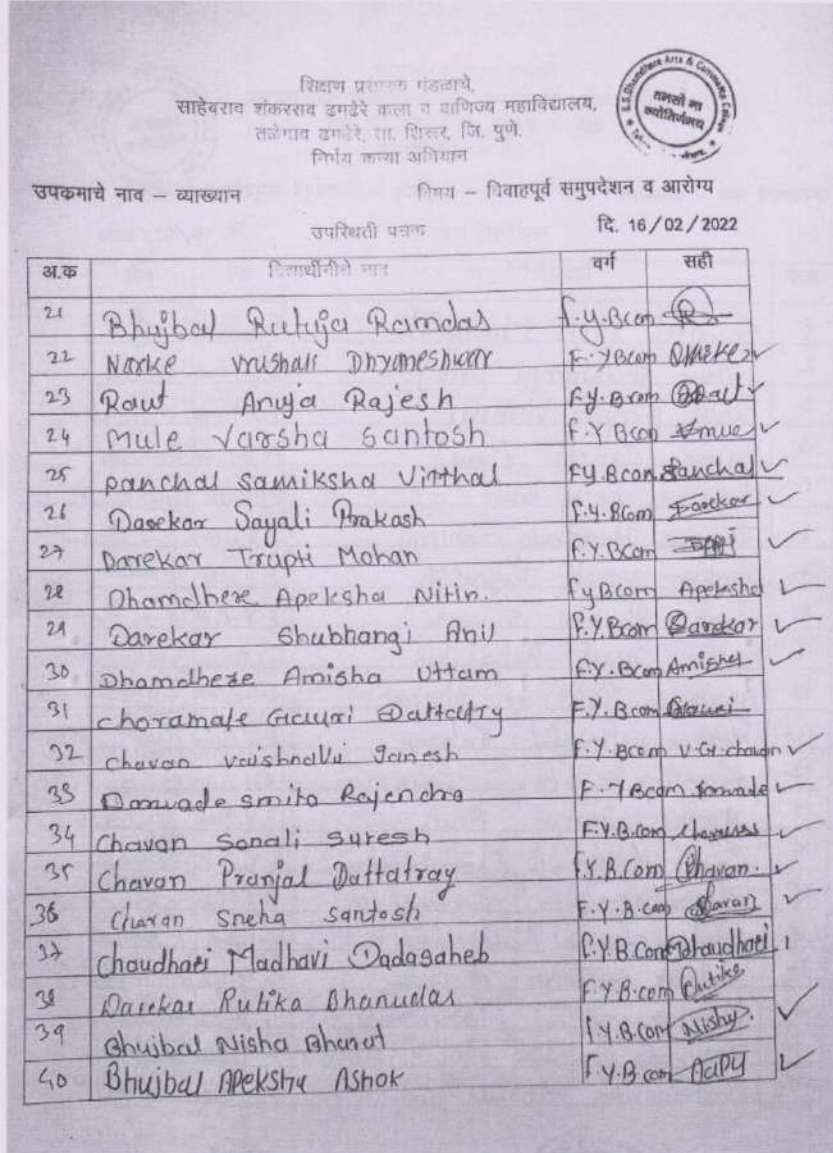 शिक्षण प्रसारक मंडळाचे,
साहेबराव शंकरराव ढमढेरे कला व वाणिज्य महाविद्यालय,
तळेगाव ढमढेरे, ता. शिरूर, जि. पुणे.
निर्भय कन्या अभियान
तमसो मा
ज्योतिर्गमय
उपकमाचे नाव – व्याख्यान विषय – विवाहपूर्व समुपदेशन व आरोग्य
उपस्थिती पत्रक दि. 16/02/2022
अ.क विद्यार्थीनीचे नाव वर्ग सही
21 Bhujbal Rutuja Ramdas F.Y.Bcom
22 Narke Vrushali Dhyaneshwar F.YBcom
23 Raut Anuja Rajesh F.Y.Bcom Raut
24 Mule Varsha Santosh F.Y Bcom
25 panchal samiksha Vitthal FY.Bcom Panchal
26 Darekar Sayali Prakash F.Y.BCom Darekar
27 Darekar Trupti Mohan F.Y.BCom
28 Dhamdhere Apeksha Nitin. FyBcom Apeksha
29 Darekar Shubhangi Anil F.Y.Bcom Darekar
30 Dhamdhere Amisha Uttam F.Y.Bcom Amisha
31 Choramale Gauri Dattatry F.Y.Bcom Gauri
32 Chavan vaishnavi Ganesh F.Y.Bcom V.G.chavan
33 Smita Rajendra F.YBcom
34 Chavan Sonali Suresh F.Y.B.com
35 Chavan Pranjal Dattatray F.Y.B.Com Chavan.
36 Chavan Sneha Santosh F.Y.B.com Chavan
37 Choudhari Madhavi Dadasaheb F.Y.B.Com
38 Darekar Rutika Bhanudas F.Y.B.com Rutika
39 Bhujbal Nisha Bharat F.Y.B.Com Nisha
40 Bhujbal Apeksha Ashok F.Y.B com